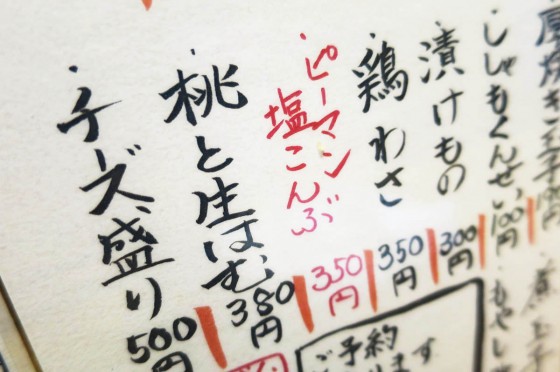 ししゃもくんせい 100円
漬けもの 300円
鶏わさ 350円
ピーマン塩こんぶ 350円
桃と生はむ 380円
チーズ盛り 500円
ご予約